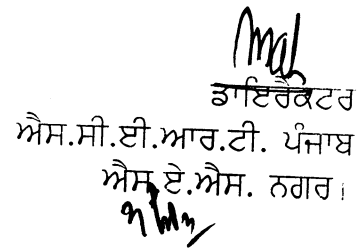 ਡਾਇਰੈਕਟਰ
ਐਸ.ਸੀ.ਈ.ਆਰ.ਟੀ. ਪੰਜਾਬ
ਐਸ.ਏ.ਐਸ. ਨਗਰ।